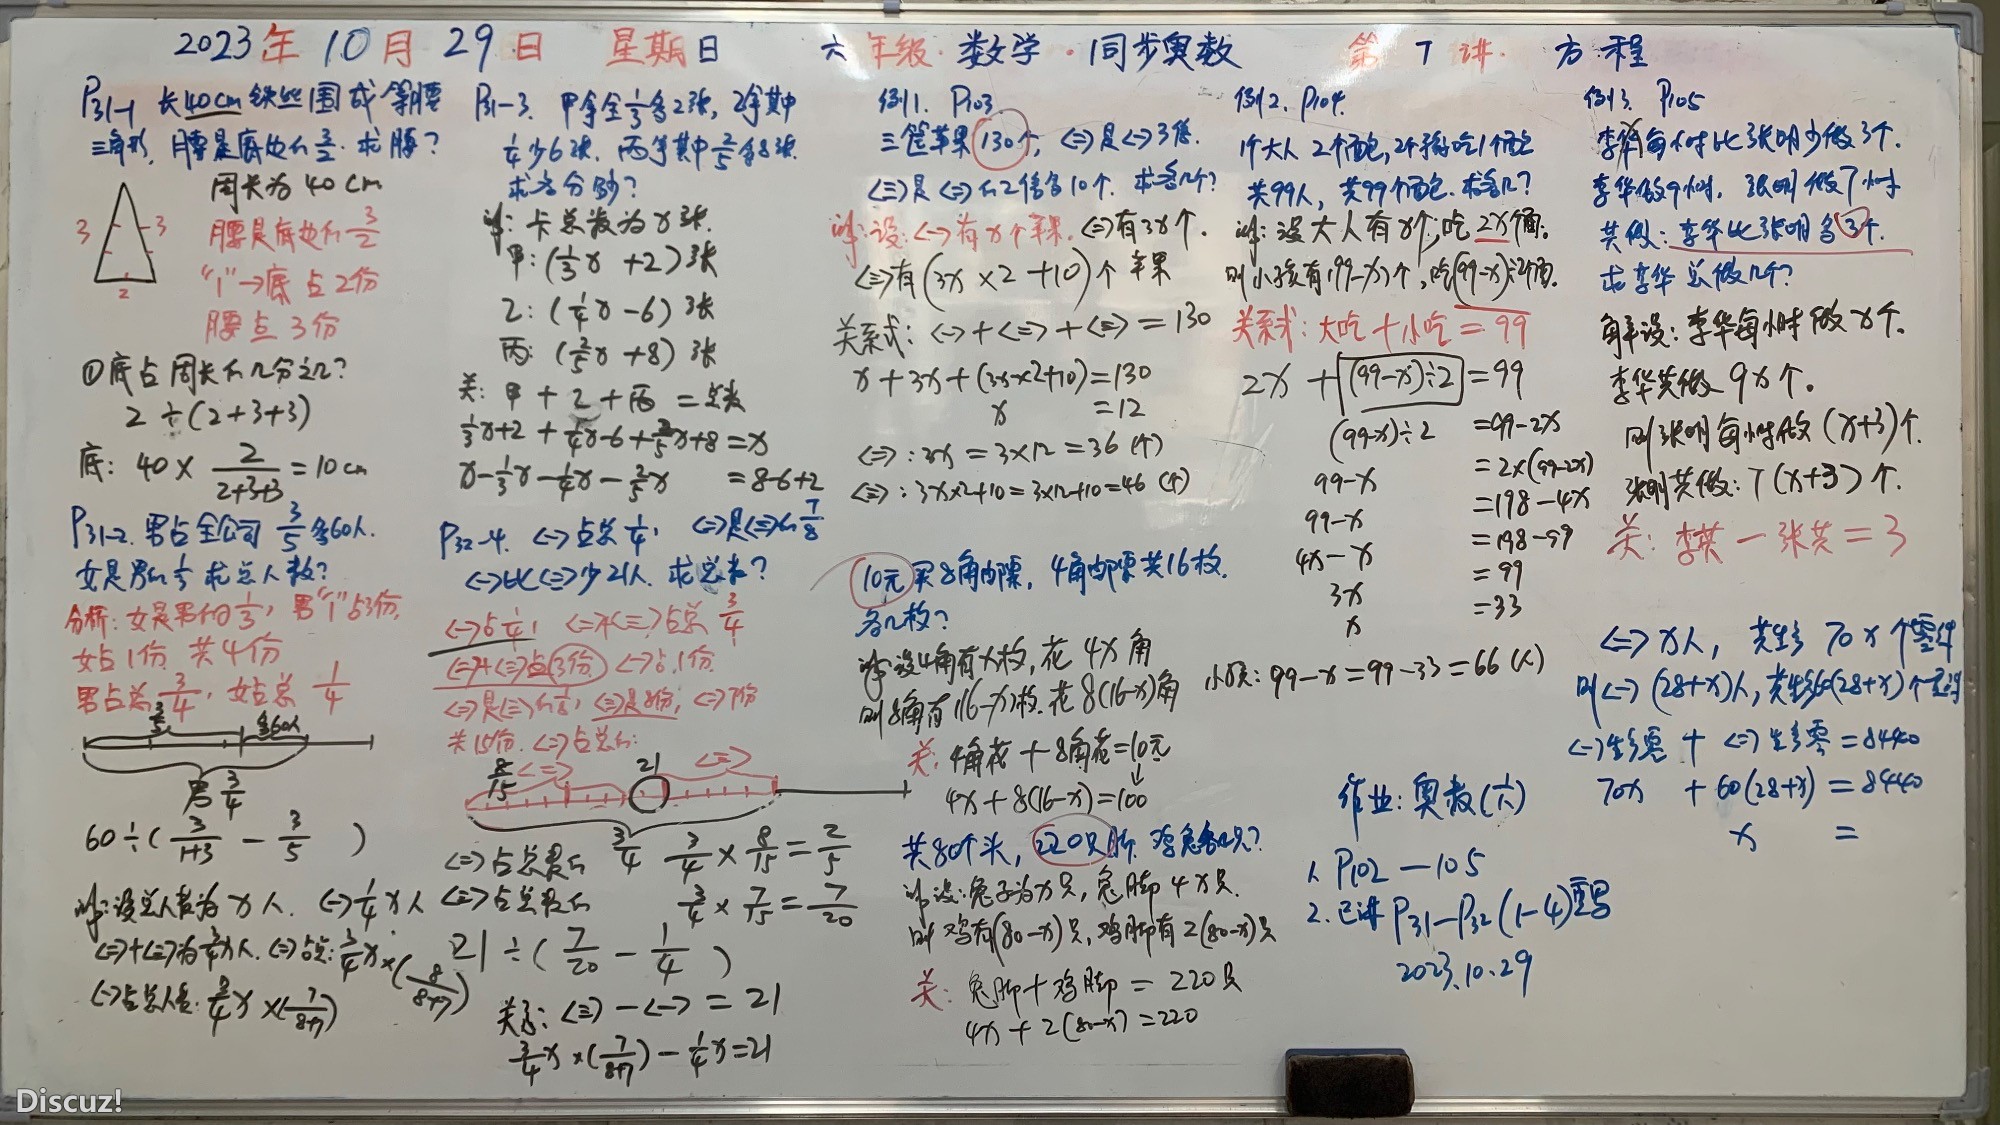 2023年10月29日 星期日 六年级·数学·同步奥数 第7讲·方程
P31-1 长40cm铁丝围成等腰
三角形,腰是底边的3/2.求腰?
3 3 2
周长为40cm
腰是底边的3/2
"1"→底占2份
腰占3份
①底占周长的几分之几?
2÷(2+3+3)
底:40×2/(2+3+3)=10cm
P31-2.男占全公司3/5多60人.
女是男的1/3 求总人数?
分析:女是男的1/3,男"1"占3份,
女占1份 共4份
男占总3/4,女占总1/4
3/5 多60人
男3/4
60÷(3/(1+3)-3/5)
解:设总人数为x人.<一>1/4x人
<二>+<三>为3/4x人.<三>占总:3/4x×(8/(8+7))
<二>占总人数:3/4x×(7/(8+7))
P31-3.甲拿全1/3多2张,乙拿其中
1/4少6张.丙等其中2/5多8张.
求各分多少?
解:卡总数为x张.
甲:(1/3x+2)张
乙:(1/4x-6)张
丙:(2/5x+8)张
关:甲+乙+丙=总数
1/3x+2+1/4x-6+2/5x+8=x
x-1/3x-1/4x-2/5x=8-6+2
P32-4.<一>占总1/4,<二>是<三>的7/8
<一>比<二>少21人.求总数?
<一>占1/4,<二>和<三>占总3/4
<二>+<三>占(3份)<一>占1份.
共15份.<三>占总的:
8/15 <二> 21 <三>
3/4
<三>占总数的 3/4×8/15=2/5
<二>占总数的 3/4×7/15=7/20
21÷(7/20-1/4)
关系:<二>-<一>=21
3/4x×(7/(8+7))-1/4x=21
例1.P103
三筐苹果130个,<二>是<一>3倍.
<三>是<二>的2倍多10个.求各几个?
解:设:<一>有x个苹果.<二>有3x个.
<三>有(3x×2+10)个苹果
关系式:<一>+<二>+<三>=130
x+3x+(3x×2+10)=130
x=12
<二>:3x=3×12=36(个)
<三>:3x×2+10=3×12+10=46(个)
10元买8角邮票,4角邮票共16枚.
各几枚?
解:设4角有x枚,花4x角
则8角有(16-x)枚.花8(16-x)角
关:4角花+8角花=10元
4x+8(16-x)=100
共80个头,220只脚.鸡兔各几只?
解:设:兔子为x只,兔脚4x只.
则鸡有(80-x)只,鸡脚有2(80-x)只
关:兔脚+鸡脚=220只
4x+2(80-x)=220
例2.P104.
1个大人2个面包,2个小孩吃1个面包
共99人,共99个面包.求各几?
解:设大人有x个,吃2x个面.
则小孩有(99-x)个,吃(99-x)÷2个面.
关系式:大吃+小吃=99
2x+(99-x)÷2=99
(99-x)÷2=99-2x
99-x=2×(99-2x)
99-x=198-4x
4x-x=198-99
3x=99
x=33
小孩:99-x=99-33=66(人)
作业:奥数(六)
1.P102-105
2.已讲P31-P32(1-4)重写
2023.10.29
例3.P105
李华每小时比张明少做3个.
李华做9小时,张明做7小时
共做:李华比张明多3个.
求李华总做几个?
解设:李华每小时做x个.
李华共做9x个.
则张明每小时做(x+3)个.
张明共做:7(x+3)个.
关:李共-张共=3
<二>x人,共生产70x个零件
则<一>(28+x)人,共生产60(28+x)个零件
<一>生产零+<二>生产零=8440
70x+60(28+x)=8440
x=
Discuz!